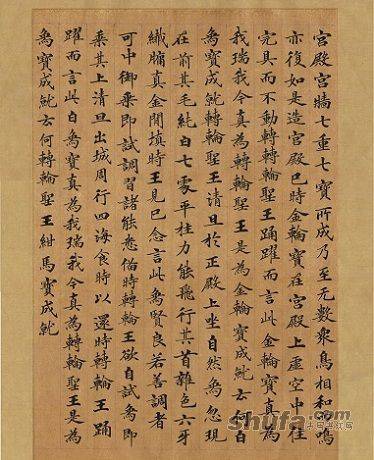 宮殿宮牆七重七寶所成乃至无數衆鳥相和而鳴
亦復如是造宮殿已時金輪寶在宮殿上虛空中住
完具而不動轉轉輪聖王踊躍而言此金輪寶真為
我瑞我今真為轉輪聖王是為金輪寶成就云何白
象寶成就轉輪聖王清旦於正殿上坐自然象忽現
在前其毛純白七處平柱力能飛行其首雜色六牙
纖牅真金間填時王見已念言此象賢良若善調者
可中御乘即試調習諸能悉備時轉輪王欲自試象即
乘其上清旦出城周行四海食時以還時轉輪王踊
躍而言此白象寶真為我瑞我今真為轉輪聖王是為
象寶成就云何轉輪聖王紺馬寶成就
shufa.com